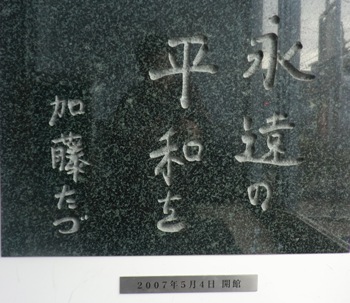 永遠の
平和を
加藤たづ
2007年5月4日 開館